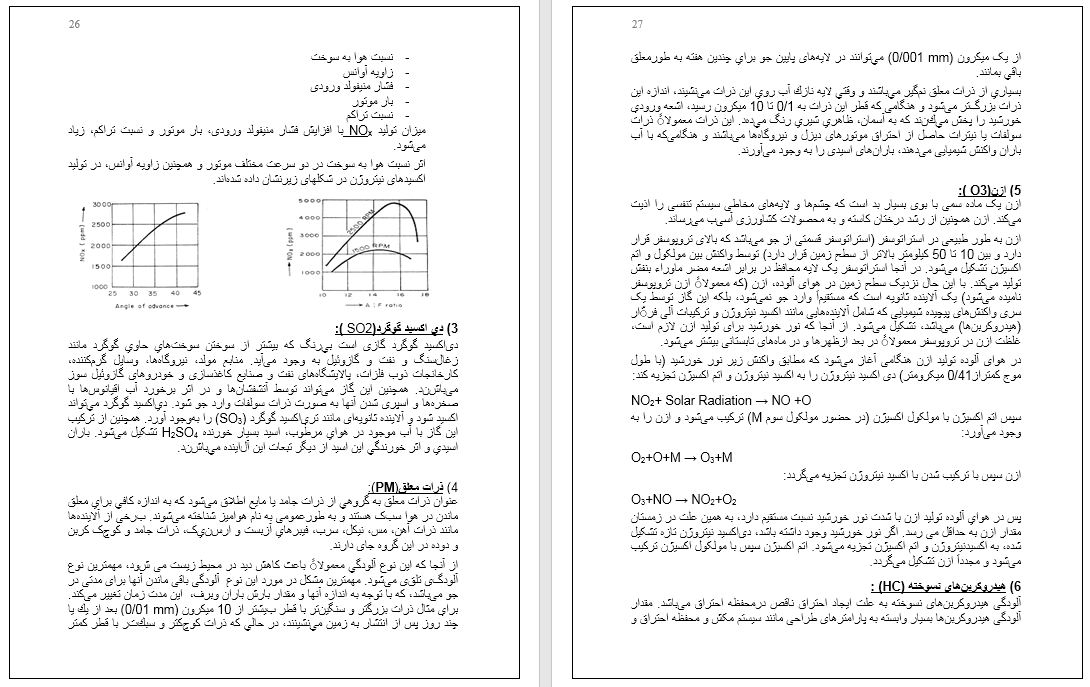 26
- نسبت هوا به سوخت
- زاویه آوانس
- فشار منیفولد ورودی
- بار موتور
- نسبت تراکم
میزان تولید NOx با افزایش فشار منیفولد ورودی، بار موتور و نسبت تراکم، زیاد
می‌شود.
اثر نسبت هوا به سوخت در دو سرعت مختلف موتور و همچنین زاویه آوانس، در تولید
اکسیدهای نیتروژن در شکلهای زیرنشان داده شده‌اند.
NOx (ppm)
3000
2500
2000
1500
1000
25 30 35 40 45
Angle of advance
NOx (ppm)
5000
4000
3000
2000
1000
2500 RPM
1500 RPM
10 12 14 16 18
A : F ratio
3) دي اکسید گوگرد(SO2 ):
دی‌اکسید گوگرد گازی است بی‌رنگ که بیشتر از سوختن سوخت‌هاي حاوي گوگرد مانند
زغال‌سنگ و نفت و گازوئیل به وجود می‌آید. منابع مولد، نیروگاه‌ها، وسایل گرم‌کننده،
کارخانجات ذوب فلزات، پالایشگاه‌های نفت و صنایع کاغذسازی و خودروهاي گازوئیل سوز
می‌باشند. همچنین این گاز می‌تواند توسط آتشفشان‌ها و در اثر برخورد آب اقیانوس‌ها با
صخره‌ها و اسپری شدن آنها به صورت ذرات سولفات وارد جو شود. دي‌اکسید گوگرد می‌تواند
اکسید شود و آلاینده ثانویه‌ای مانند تری‌اکسید گوگرد (SO3) را به‌وجود آورد. همچنین از ترکیب
این گاز با آب موجود در هواي مرطوب، اسید بسیار خورنده H2SO4 تشکیل می‌شود. باران
اسیدي و اثر خورندگي این اسید از دیگر تبعات این آلاینده می‌باشند.
4) ذرات معلق(PM):
عنوان ذرات معلق به گروهي از ذرات جامد یا مایع اطلاق می‌شود که به اندازه کافي براي معلق
ماندن در هوا سبک هستند و به طورعمومی به نام هوامیز شناخته می‌شوند. برخی از آلاینده‌ها
مانند ذرات آهن، مس، نیکل، سرب، فیبرهاي آزبست و ارسنیک، ذرات جامد و کوچک کربن
و دوده در این گروه جاي دارند.
از آنجا که این نوع آلودگي معمولاً باعث کاهش دید در محیط زیست می شود، مهمترین نوع
آلودگی تلقی می‌شود. مهمترین مشکل در مورد این نوع آلودگی باقی ماندن آنها برای مدتی در
جو می‌باشد، که با توجه به اندازه آنها و مقدار بارش باران وبرف، این مدت زمان تغییر می‌کند.
براي مثال ذرات بزرگتر و سنگین‌تر با قطر بیشتر از 10 میکرون (0/01 mm) بعد از یك یا
چند روز پس از انتشار به زمین می‌نشینند، در حالي که ذرات کوچکتر و سبکتر با قطر کمتر
27
از یک میکرون (0/001 mm) می‌توانند در لایه‌های پایین جو براي چندین هفته به طورمعلق
باقی بمانند.
بسیاري از ذرات معلق نم‌گیر می‌باشند و وقتي لایه نازك آب روي این ذرات می‌نشیند، اندازه این
ذرات بزرگ‌تر می‌شود و هنگامي که قطر این ذرات به 0/1 تا 10 میکرون رسید، اشعه ورودي
خورشید را پخش می‌کنند که به آسمان، ظاهري شیري رنگ می‌دهد. این ذرات معمولاً ذرات
سولفات یا نیترات حاصل از احتراق موتورهای دیزل و نیروگاه‌ها می‌باشند و هنگامی‌که با آب
باران واکنش شیمیایی می‌دهند، باران‌های اسیدی را به وجود می‌آورند.
5) ازن(O3 ):
ازن یک ماده سمی با بوی بسیار بد است که چشم‌ها و لایه‌های مخاطی سیستم تنفسی را اذیت
می‌کند. ازن همچنین از رشد درختان کاسته و به محصولات کشاورزی آسیب می‌رساند.
ازن به طور طبیعی در استراتوسفر (استراتوسفر قسمتی از جو می‌باشد که بالای تروپوسفر قرار
دارد و بین 10 تا 50 کیلومتر بالاتر از سطح زمین قرار دارد) توسط واکنش بین مولکول و اتم
اکسیژن تشکیل می‌شود. در آنجا استراتوسفر یک لایه محافظ در برابر اشعه مضر ماوراء بنفش
تولید می‌کند. با این حال نزدیک سطح زمین در هوای آلوده، ازن (که معمولاً ازن تروپوسفر
نامیده می‌شود) یک آلاینده ثانویه است که مستقیماً وارد جو نمی‌شود، بلکه این گاز توسط یک
سری واکنش‌های پیچیده شیمیایی که شامل آلاینده‌هایی مانند اکسید نیتروژن و ترکیبات آلی فرّار
(هیدروکربن‌ها) می‌باشد، تشکیل می‌شود. از آنجا که نور خورشید برای تولید ازن لازم است،
غلظت ازن در تروپوسفر معمولاً در بعد ازظهرها و در ماه‌های تابستانی بیشتر می‌شود.
در هوای آلوده تولید ازن هنگامی آغاز می‌شود که مطابق واکنش زیر نور خورشید (با طول
موج کمتراز0/41 میکرومتر) دی اکسید نیتروژن را به اکسید نیتروژن و اتم اکسیژن تجزیه کند:
NO2+ Solar Radiation → NO +O
سپس اتم اکسیژن با مولکول اکسیژن (در حضور مولکول سوم M) ترکیب می‌شود و ازن را به
وجود می‌آورد:
O2+O+M → O3+M
ازن سپس با ترکیب شدن با اکسید نیتروژن تجزیه می‌گردد:
O3+NO → NO2+O2
پس در هواي آلوده تولید ازن با شدت نور خورشید نسبت مستقیم دارد، به همین علت در زمستان
مقدار ازن به حداقل می رسد. اگر نور خورشید وجود داشته باشد، دی‌اکسید نیتروژن تازه تشکیل
شده، به اکسیدنیتروژن و اتم اکسیژن تجزیه می‌شود. اتم اکسیژن سپس با مولکول اکسیژن ترکیب
می‌شود و مجدداً ازن تشکیل می‌گردد.
6) هیدروکربن‌های نسوخته (HC) :
آلودگی هیدروکربن‌های نسوخته به علت ایجاد احتراق ناقص درمحفظه احتراق می‌باشد. مقدار
آلودگی هیدروکربن‌ها بسیار وابسته به پارامترهای طراحی مانند سیستم مکش و محفظه احتراق و